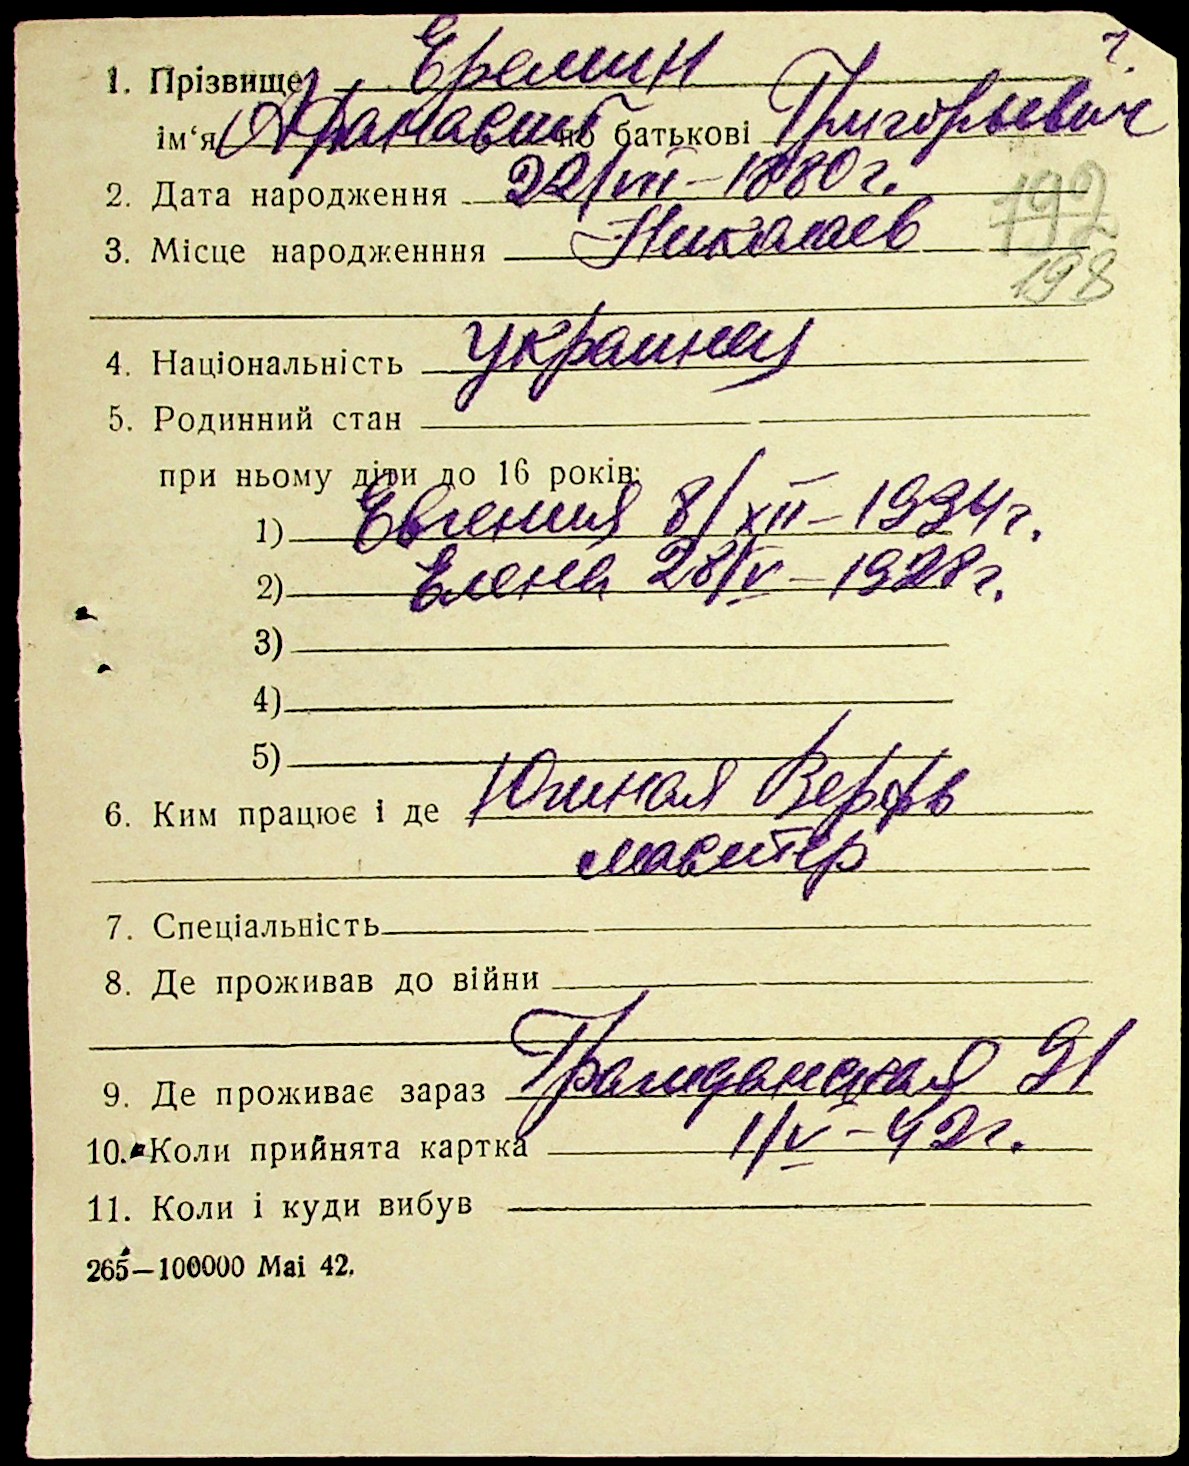 1. Прізвище Еремин
7.
ім'я Афанасий по батькові Григорьевич
2. Дата народження 22/VII-1880г.
192
3. Місце народженння Николаев
198
4. Національність украинец
5. Родинний стан
при ньому діти до 16 років:
1) Евгения 8/XII-1924г.
2) Елена 28/V-1928г.
3)
4)
5)
6. Ким працює і де Южная Верфь
мастер
7. Спеціальність
8. Де проживав до війни
9. Де проживає зараз Гражданская 91
10. Коли прийнята картка 1/V-42г.
11. Коли і куди вибув
265—100000 Mai 42.